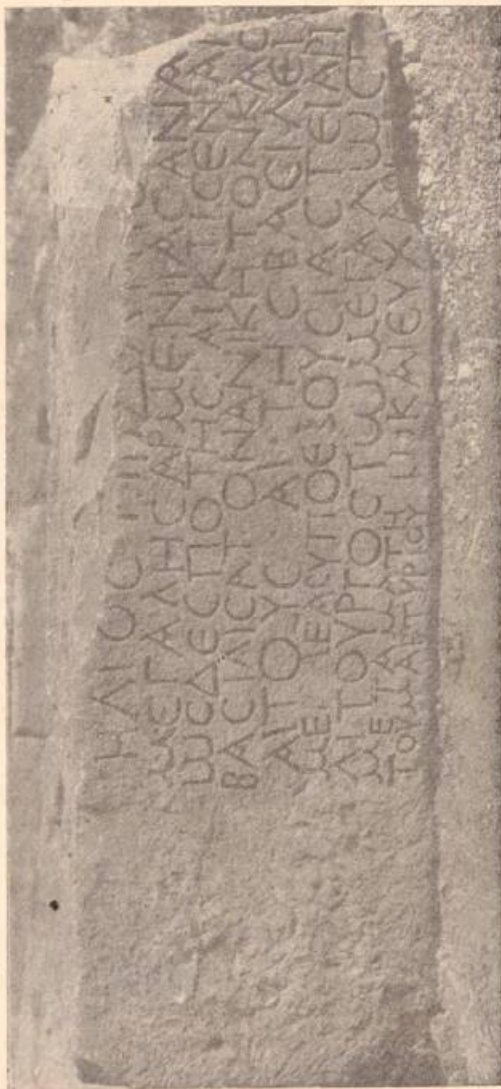 ΗΛΙΟC
ΜΕΓΑΛΗCΑΡΜΕΝΙΑCΑΝΑ
ΩCΔΕCΠΟΤΗC ΑΙΚΤΙCΕΝΑΙ
ΒΑCΙΛΙCΑΤΟΝΑΝΙΚΗΤΟΝΚΑC
ΑΙΤΟΥC ΑΙ ΤΗ CΒΑCΙΛΕΙ
ΜΕ ΙΕΑCΥΠΟΕΞΟΥCΙΑCΤΕΙΑΡΙ
ΛΙΤΟΥΡΓΟCΤΩΜΕΓΑΛΩCΤ
ΜΕΤΑΜΑΤΗ
ΤΟΥΜΑΡΤΥΡΙΟΥ ΚΑΙΕΥΧΑ